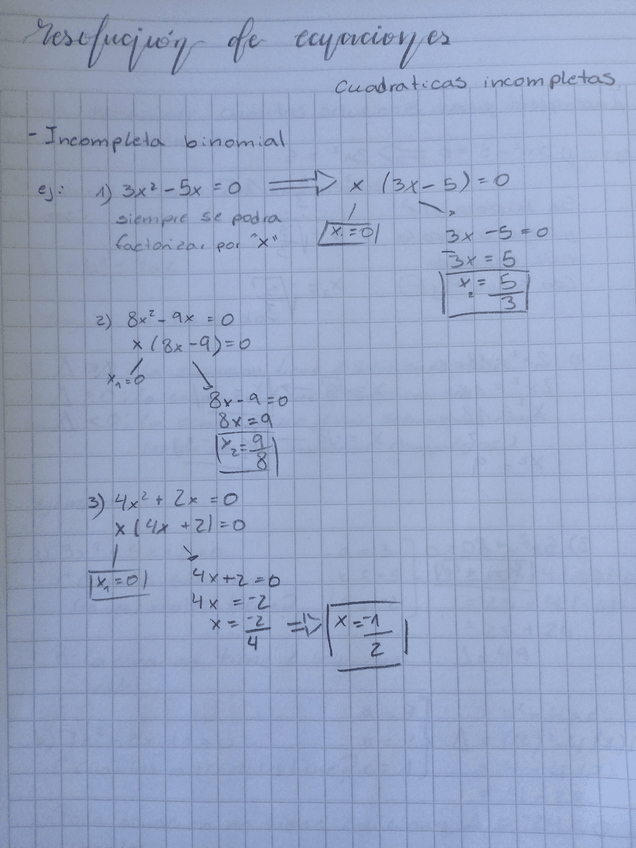 resolución de ecuaciones
cuadraticas incompletas
- Incompleta binomial
ej: 1) 3x² - 5x = 0 ⟹ x (3x - 5) = 0
siempre se podra
factorizar por "x"
x₁ = 0
3x - 5 = 0
3x = 5
x₂ = 5/3
2) 8x² - 9x = 0
x (8x - 9) = 0
x₁ = 0
8x - 9 = 0
8x = 9
x₂ = 9/8
3) 4x² + 2x = 0
x (4x + 2) = 0
x₁ = 0
4x + 2 = 0
4x = -2
x = -2/4 ⟹ x = -1/2